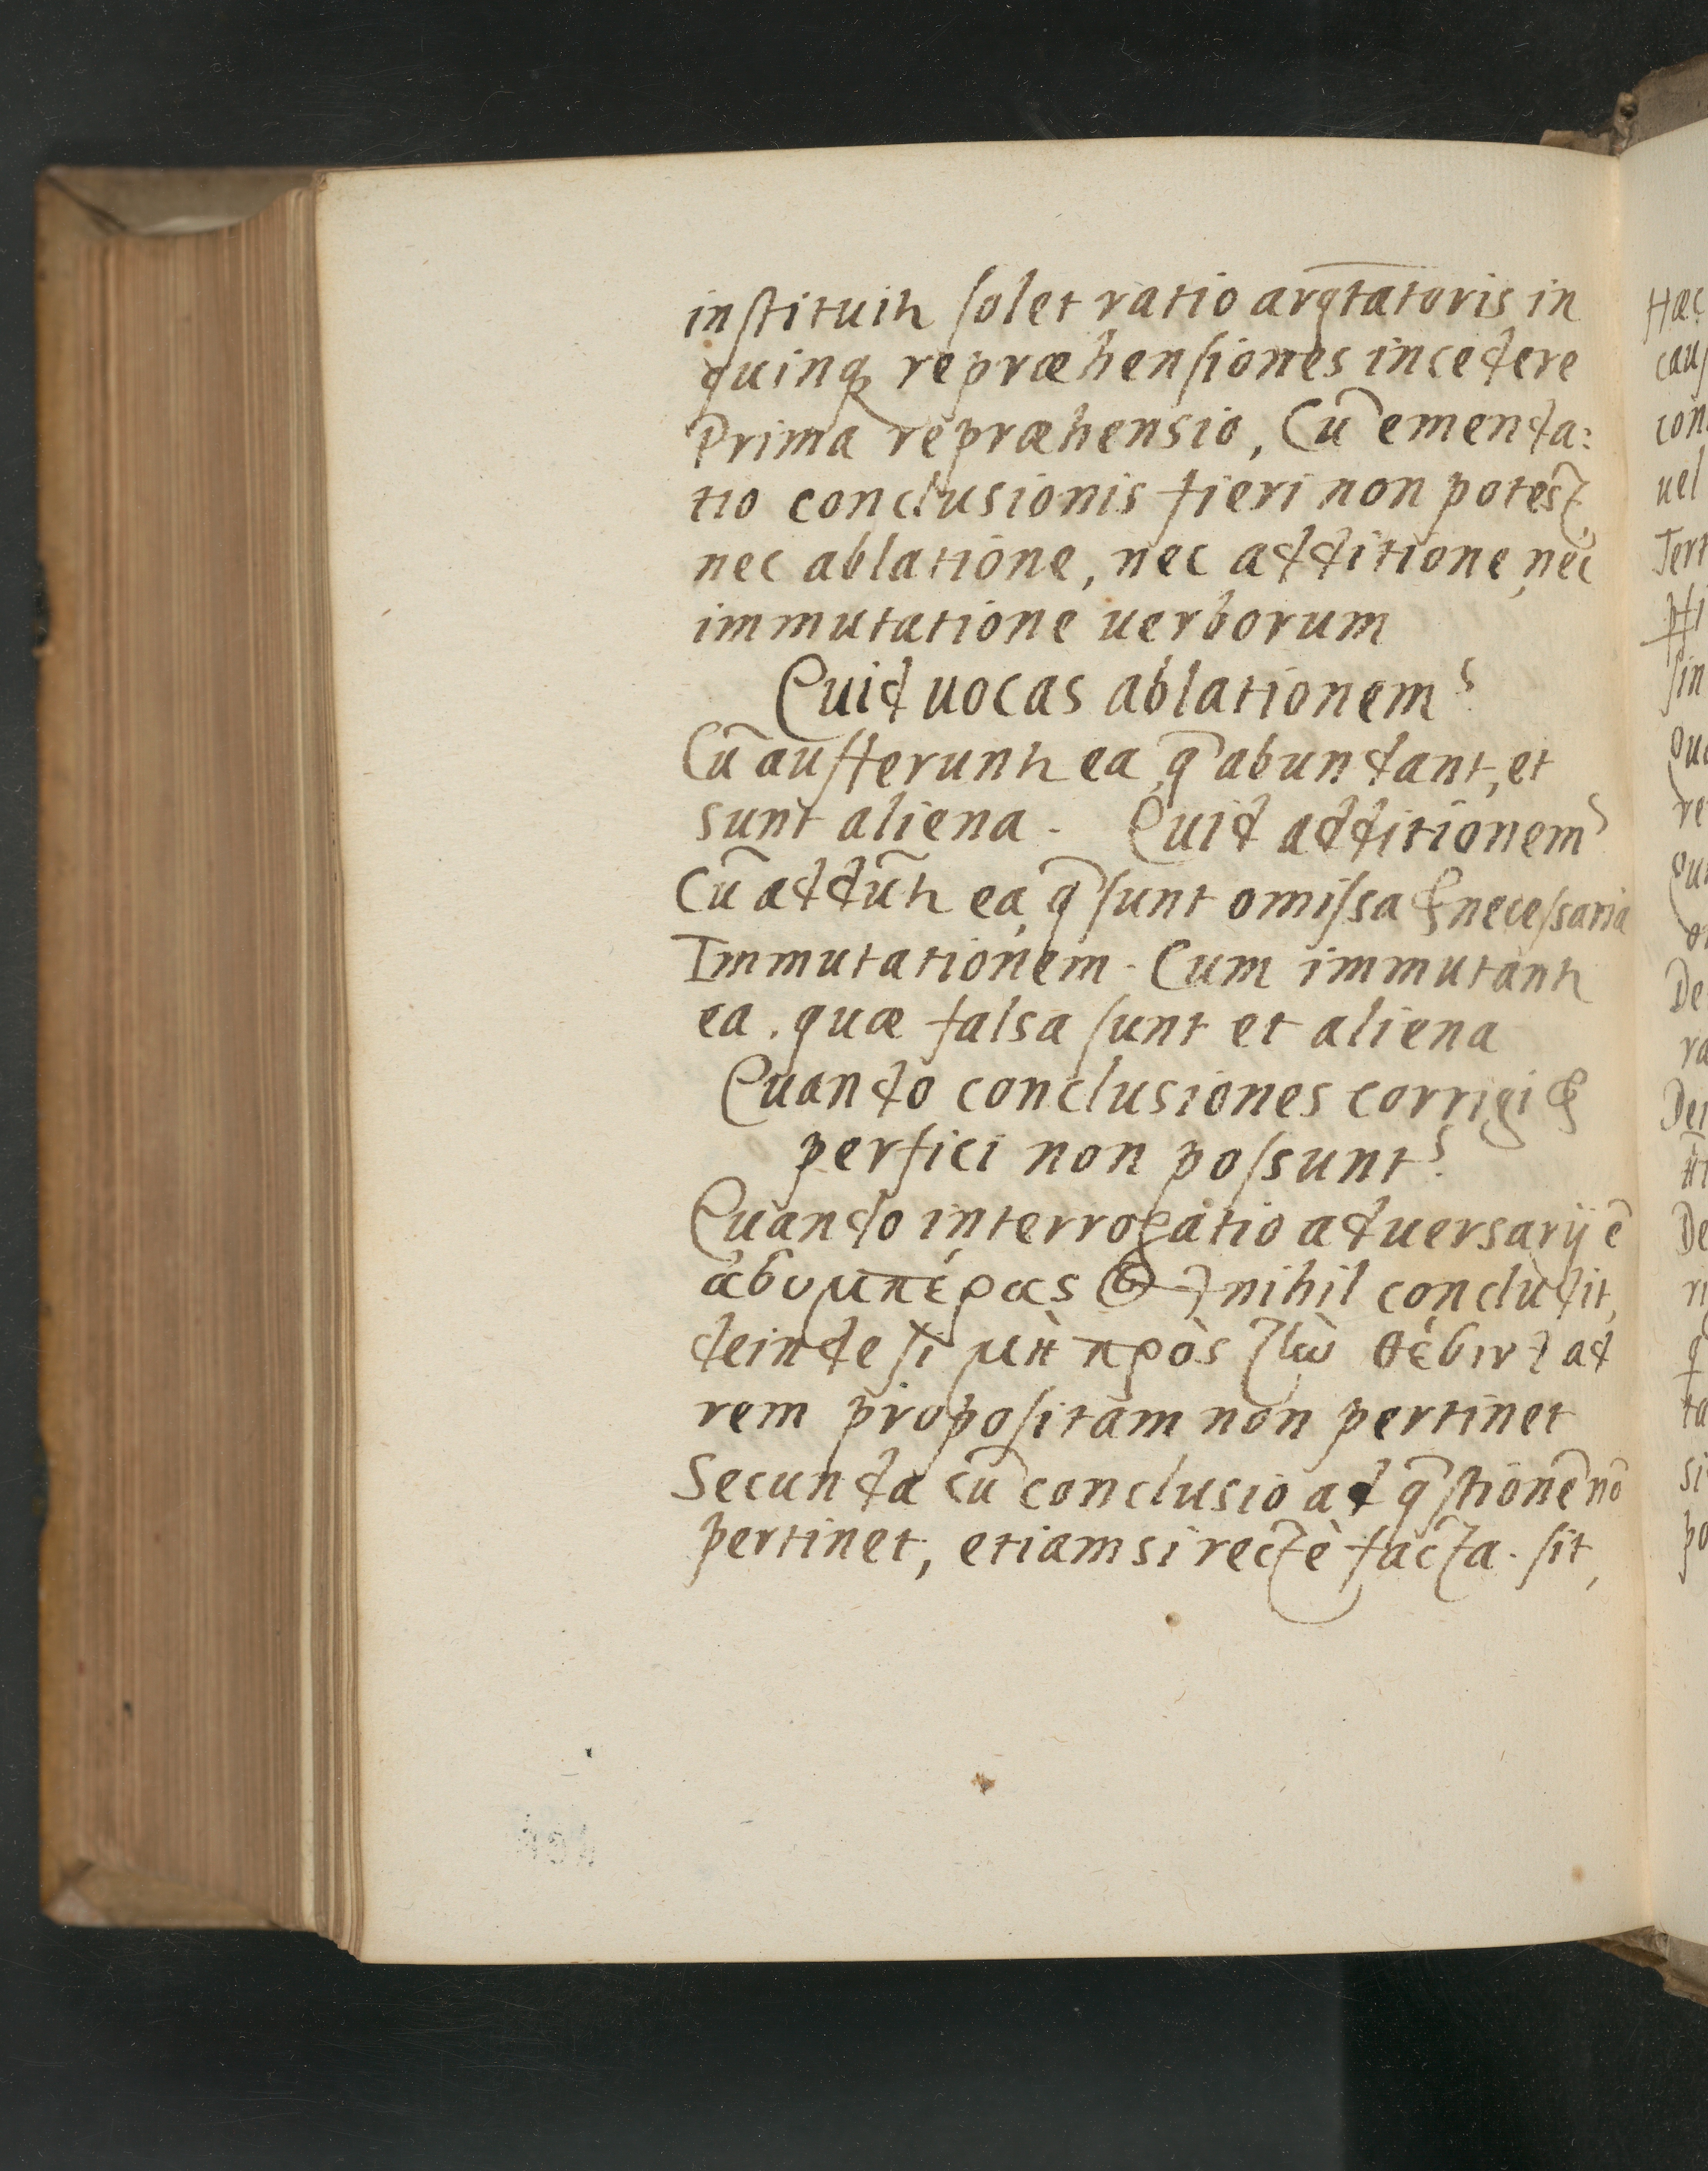 instituit᷑ solet ratio argtatoris in
quinq; repræhensiones incedere
Prima repræhensio, Cū emenda:
tio conclusionis fieri non potest,
nec ablatione, nec additione, nec
immutatione uerborum
Quid uocas ablationem?
Cū aufferunt᷑ ea, q̄ abundant, et
sunt aliena. Quid additionem?
Cū addūt᷑ ea, q̄ sunt omissa & necessaria
Immutationem. Cum immutant᷑
ea. quæ falsa sunt et aliena
Quando conclusiones corrigi &
perfici non possunt?
Quando interrogatio aduersarij ē
ἀσυμπέρας nihil concludit,
deinde si μὴ πρὸς τὴν θέσιν ad
rem propositam non pertinet
Secunda cū conclusio ad q̄stionē nō
pertinet, etiamsi rectè facta. sit,
Hæc
caus
con
uel
Tert
sin
De
ra
De
si
po